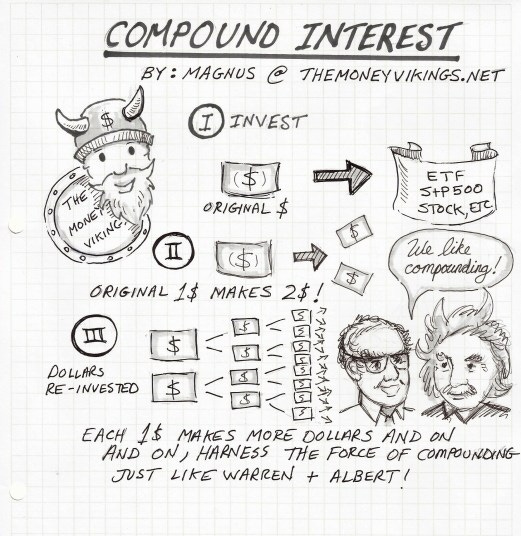 COMPOUND INTEREST
BY: MAGNUS @ THEMONEYVIKINGS.NET
$
THE
MONEY
VIKING!
I INVEST
($)
ORIGINAL $
ETF
S+P500
STOCK, ETC
II
($)
$
$
ORIGINAL 1$ MAKES 2$!
We like
compounding!
III
DOLLARS
RE-INVESTED
$
$
$
$
$
$
$
$
$
$
$
$
$
$
EACH 1$ MAKES MORE DOLLARS AND ON
AND ON, HARNESS THE FORCE OF COMPOUNDING
JUST LIKE WARREN + ALBERT!